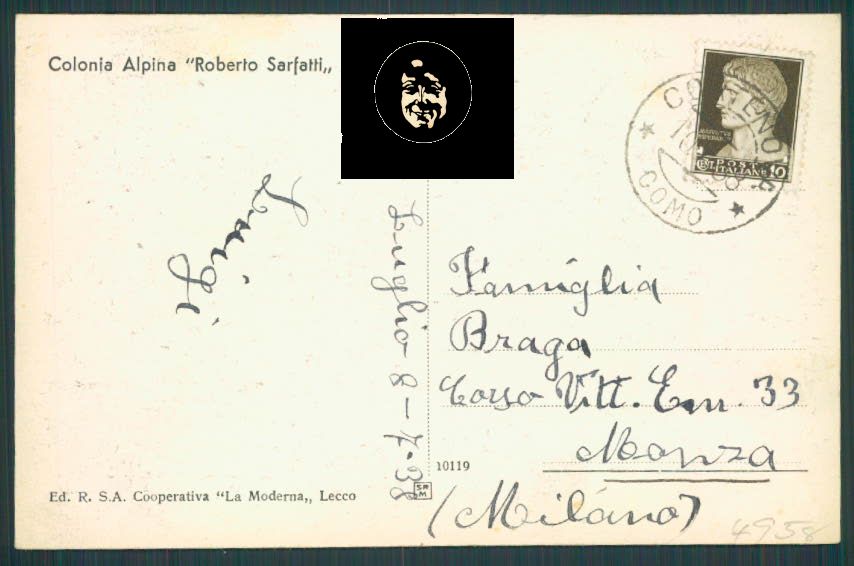 Colonia Alpina "Roberto Sarfatti,,
COMO
POSTE
ITALIANE
CENT. 10
Luigi
Luglio 8-7-38
Famiglia
Braga
Corso Vitt. Em. 33
Monza
(Milano)
10119
SA
M
Ed. R. S.A. Cooperativa "La Moderna,, Lecco
4958